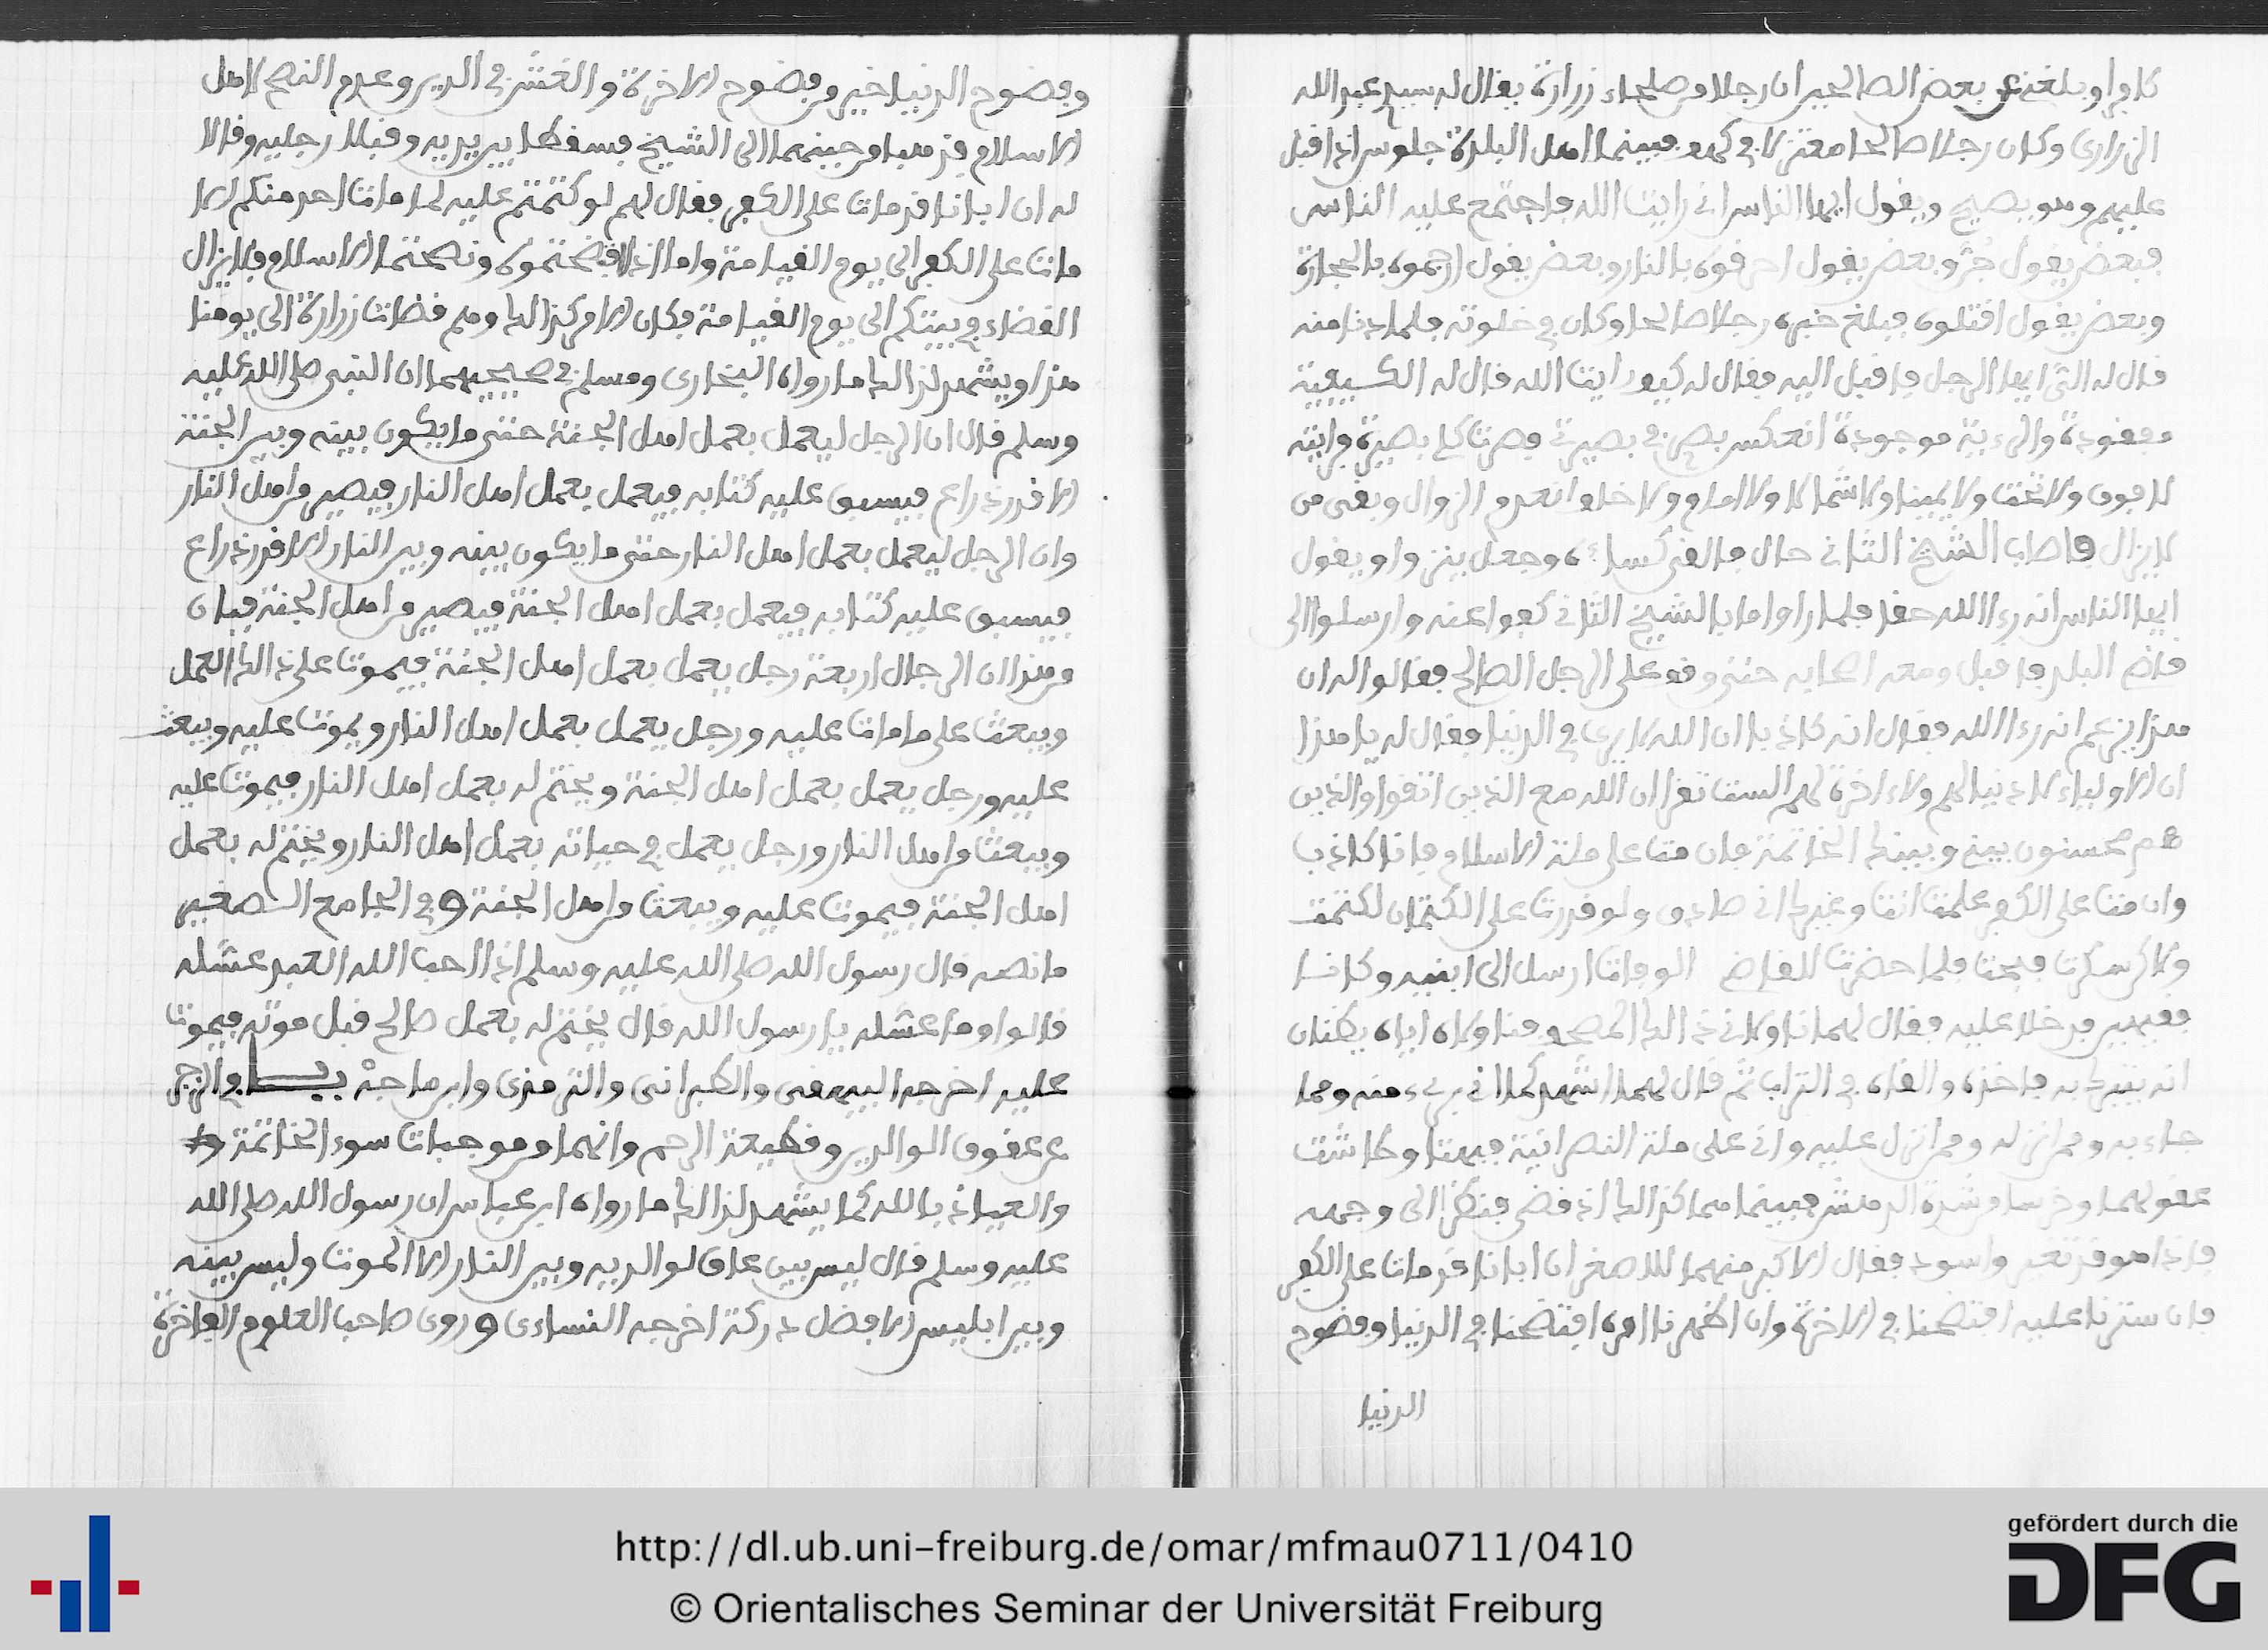 كافرا وبلغني عن بعض الصالحين ان رجلا من صلحاء زرارة يقال له سيد عبد الله
الزراري وكان رجلا صالحا معتزلا في كهف فبينما اهل البلدة جلوس اذ اقبل
عليهم وهو يصيح ويقول ايها الناس اني رايت الله فاجتمع عليه الناس
فبعض يقول جن وبعض يقول احرقوه بالنار وبعض يقول ارجموه بالحجارة
وبعض يقول اقتلوه فبلغ خبره رجلا صالحا وكان في خلوته فلما دنا منه
قال له ايها الرجل فاقبل اليه فقال له كيف رايت الله قال له الكيفية
مفقودة والرءية موجودة انعكس بصري في بصيرتي فصرت كلي بصيرة فرايته
لا فوق ولا تحت ولا يمينا ولا شمالا ولا امام ولا خلف انعدم الزوال وبقى من
لا يزال واصاب الشيخ الثاني حال فالقى كساءه وجعل ينزوا ويقول
ايها الناس انه رءا الله حقا فلما راوا ما بالشيخ الثاني كفوا عنه وارسلوا الى
قاض البلد فاقبل ومعه اصحابه حتى وقف على الرجل الصالح فقالوا له ان
هذا يزعم انه رءا الله فقال انه كاذب ان الله لا يرى في الدنيا فقال له يا هذا
ان الاولياء لا دنيا لهم ولا ءاخرة لهم الست تقرا ان الله مع الذين اتقوا والذين
هم محسنون بيني وبينك الخاتمة فان مت على ملة الاسلام فانا كاذب
وان مت على الكفر علمت انت وغيرك اني صادق ولو قدرت على الكتمان لكتمت
ولاكن سكرت فبحت فلما حضرت للقاض الوفات ارسل الى ابنيه وكانا
فقيهين فدخلا عليه فقال لهما ناولاني ذالك المصحف فناولاه اياه يظنان
انه يتبرك به فاخذه والقاه في التراب ثم قال لهما اشهدكما اني برىء منه ومما
جاء به وممن انزله وممن انزل عليه واني على ملة النصرانية فبهتا وطاشت
عقولهما وخرسا من شدة الدهش فبينما هما كذالك اذ قضى فنظرا الى وجهه
فاذا هو قد تغير واسود فقال الاكبر منهما للاصغر ان ابانا قد مات على الكفر
فان سترنا عليه افتضحنا في الاخرة وان اظهرنا امره افتضحنا في الدنيا وفضوح
الدنيا
وفضوح الدنيا خير من فضوح الاخرة والغش في الدين وعدم النصح لاهل
الاسلام فذهبا من حينهما الى الشيخ فسقطا بين يديه وقبلا رجليه وقالا
له ان ابانا قد مات على الكفر فقال لهم لو كتمتم عليه لما مات احد منكم الا
مات على الكفر الى يوم القيامة واما اذا فضحتموه ونصحتما الاسلام فلا يزال
القضاء في بيتكم الى يوم القيامة فكان الامر كذالك وهم قضات زرارة الى يومنا
هذا ويشهد لذالك ما رواه البخاري ومسلم في صحيحيهما ان النبي صلى الله عليه
وسلم قال ان الرجل ليعمل بعمل اهل الجنة حتى ما يكون بينه وبين الجنة
الا قدر ذراع فيسبق عليه كتابه فيعمل بعمل اهل النار فيصير من اهل النار
وان الرجل ليعمل بعمل اهل النار حتى ما يكون بينه وبين النار الا قدر ذراع
فيسبق عليه كتابه فيعمل بعمل اهل الجنة فيصير من اهل الجنة فبان
من هذا ان الرجال اربعة رجل يعمل بعمل اهل الجنة فيموت على ذالك العمل
ويبعث على ما مات عليه ورجل يعمل بعمل اهل النار ويموت عليه ويبعث
عليه ورجل يعمل بعمل اهل الجنة ويختم له بعمل اهل النار فيموت عليه
ويبعث من اهل النار ورجل يعمل في حياته بعمل اهل النار ويختم له بعمل
اهل الجنة فيموت عليه ويبعث من اهل الجنة وفي الجامع الصغير
ما نصه قال رسول الله صلى الله عليه وسلم اذا احب الله العبد عسله
قالوا وما عسله يا رسول الله قال يختم له بعمل صالح قبل موته فيموت
عليه اخرجه البيهقى والطبرانى والترمذى وابن ماجة في الزجر
عن عقوق الوالدين وقطيعة الرحم وانهما من موجبات سوء الخاتمة
والعياذ بالله كما يشهد لذالك ما رواه ابن عباس ان رسول الله صلى الله
عليه وسلم قال ليس بين عاق لوالديه وبين النار الا الموت وليس بينه
وبين ابليس الا فضل دركة اخرجه النساءى وروى صاحب العلوم الفاخرة
http://dl.ub.uni-freiburg.de/omar/mfmau0711/0410
© Orientalisches Seminar der Universität Freiburg
gefördert durch die
DFG